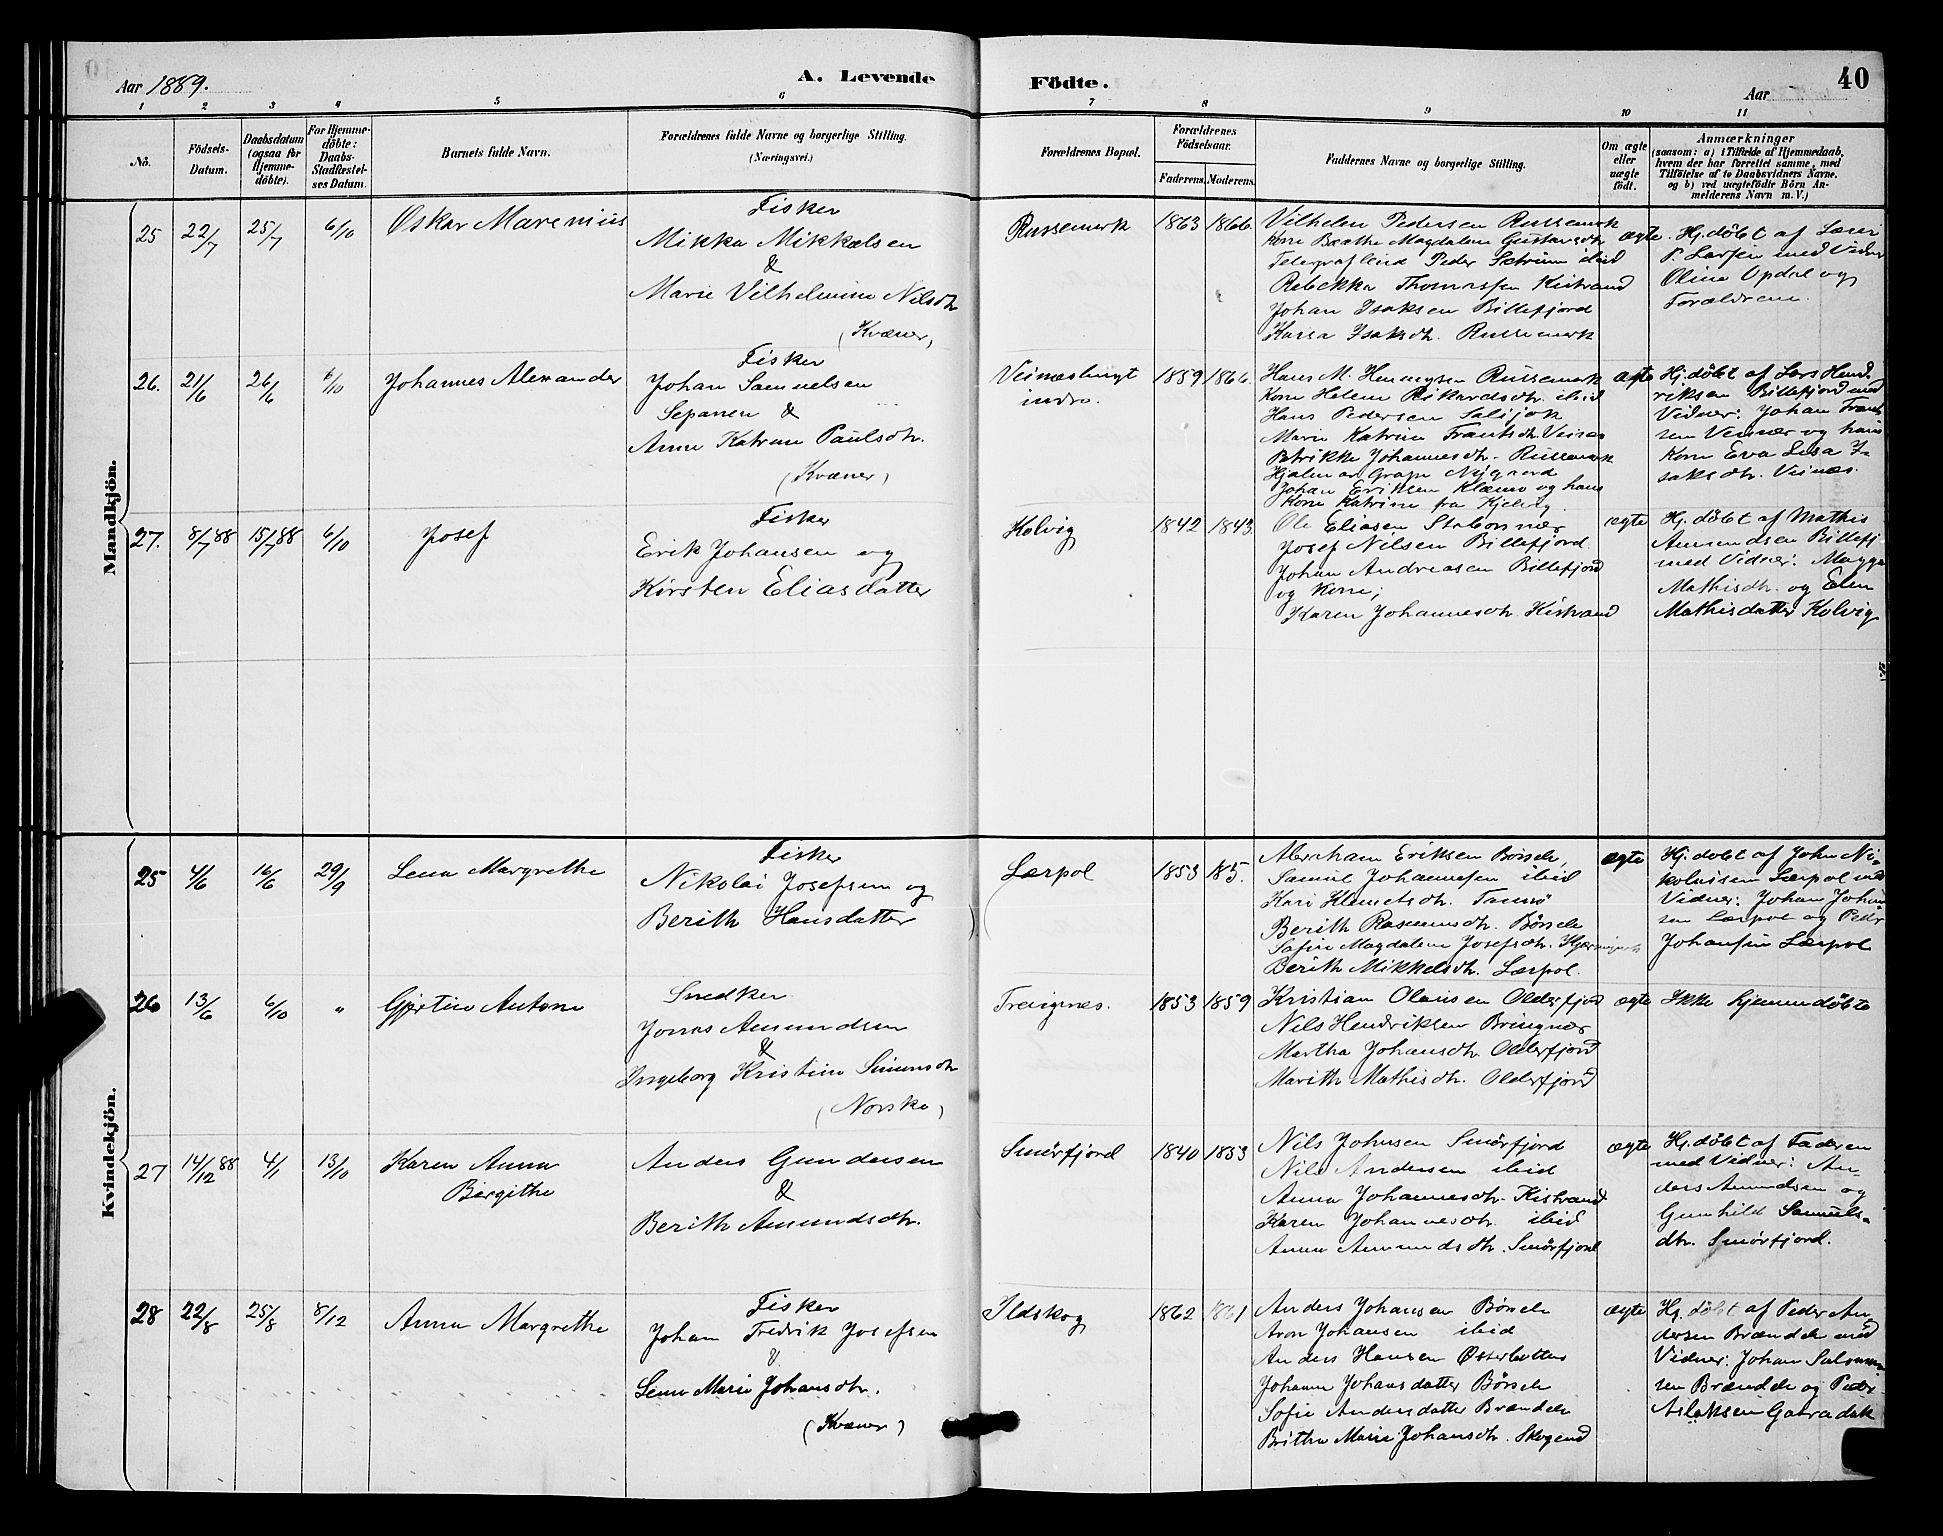 Aar 1889.
A. Levende
Födte.
Aar
40
1 2 3 4 5 6 7 8 9 10 11
No.
Födsels-
Datum.
Daabsdatum
(ogsaa for
Hjemme-
døbte).
For Hjemme-
døbte:
Daabs-
Stadfæstel-
ses Datum.
Barnets fulde Navn.
Forældrenes fulde Navne og borgerlige Stilling.
(Næringsvei.)
Forældrenes Bopæl.
Forældrenes
Fødselsaar.
Faderens. Moderens.
Faddernes Navne og borgerlige Stilling.
Om ægte
eller
uægte
født.
Anmærkninger
(saasom: a) i Tilfælde af Hjemmedaab,
hvem der har forrettet samme, med
Tilføielse af to Daabsvidners Navne,
og b) ved uægtefødte Børn An-
melderens Navn m. V.)
Mandkjön.
25 22/7 25/7 6/10 Oskar Marenius
Fisker
Mikka Mikkelsen
&
Marie Vilhelmine Nilsdtr
(Kvæner)
Russemark 1863 1866.
Vilhelm Pedersen Russemark
Kone Beathe Magdalena Gustavsdtr
Peder Sætrum ibid
Rebekka Thomassen Kistrand
Johan Isaksen Billefjord
Kaisa Isaksdtr. Russemark
ægte.
Hj. døbt af Lærer
P. Larsen med Vidner
Oline Opdal og
Forældrene.
26. 21/6 26/6 6/10 Johannes Alexander
Fisker
Johan Samuelsen
Sepanen &
Anna Katrina Paulsdtr.
(Kvæner)
Veinesbugt
indre.
1859 1866.
Hans M. Henrygsen Russemark
Kone Helene Rikardsdtr. ibid
Hans Pedersen Saljok
Marie Katrine Frantsdtr. Veines
Petrikke Johannesdtr. Russemark
Hjalmar Grape Nygaard
Johan Eriksen Klæmo og hans
Kone Katrine fra Kjelvig
ægte
Hj. døbt af Lars Hend-
riksen Billefjord med
Vidner: Johan Frant-
sen Veinær og hans
Kone Eva Lisa I-
saksdtr. Veinæs.
27. 8/7 88 15/7 88 6/10 Josef
Fisker
Erik Johansen og
Kirsten Eliasdatter
Kolvig 1842 1843.
Ole Eliasen Stabornær
Josef Nilsen Billefjord
Johan Andreasen Billefjord
og Kone;
Karen Johannesdtr. Kistrand
ægte
Hj. døbt af Mathis
Amundsen Billefj
med Vidner: Magga
Mathisdtr. og Elen
Mathisdatter Kolvig
Kvindekjön.
25 4/6 16/6 29/9 Lena Margrethe
Fisker
Nikolai Josefsen og
Berith Hansdatter
Lærpol 1853 185.
Abraham Eriksen Børsele,
Samuel Johannesen ibid
Kari Klemetsdtr. Tamsø
Berith Rasmusdtr. Børsele
Sofie Magdalena Josefsdtr.
Berith Mikkelsdtr. Lærpol.
ægte
Hj. døbt af John Ni-
kolaisen Lærpol med
Vidner: Johan Johan-
sen Lærpol og Peder
Johansen Lærpol
26 13/6 6/10 " Gjertine Antone
Snedker
Jonas Amundsen
&
Ingeborg Kristine Simonsdtr
(Norske)
Treignes. 1853 1859
Kristian Olausen Olderfjord
Nils Hendriksen Bringnær
Martha Johansdtr. Olderfjord
Marith Mathisdtr. Olderfjord
ægte
Ikke hjemmedøbte
27 14/12 88 4/1 13/10 Karen Anna
Birgithe
Anders Gundersen
&
Berith Amundsdtr.
Smörfjord 1840 1853
Nils Johnsen Smörfjord
Nils Andersen ibid
Anna Johannesdtr. Kistrand
Karen Johannesdtr. ibid
Anna Amundsdtr. Smörfjord
ægte
Hj. døbt af Faderen
med Vidner: An-
ders Amundsen og
Gunhild Samuels-
dtr. Smörfjord.
28 22/8 25/8 8/12 Anna Margrethe
Fisker
Johan Fredrik Josefsen
&
Lena Marie Johansdtr.
(Kvæner)
Ildskog 1862 1861
Anders Johansen Børsele
Aron Johansen ibid
Anders Hansen Østerbotten
Johanna Johansdatter Børsele
Sofie Andersdatter Brændde
Britha Maria Johansdtr. Skoganvd
ægte
Hj. døbt af Peder An-
dersen Brændde med
Vidner: Johan Salomon-
sen Brændde og Peder
Aslaksen Gaaradak